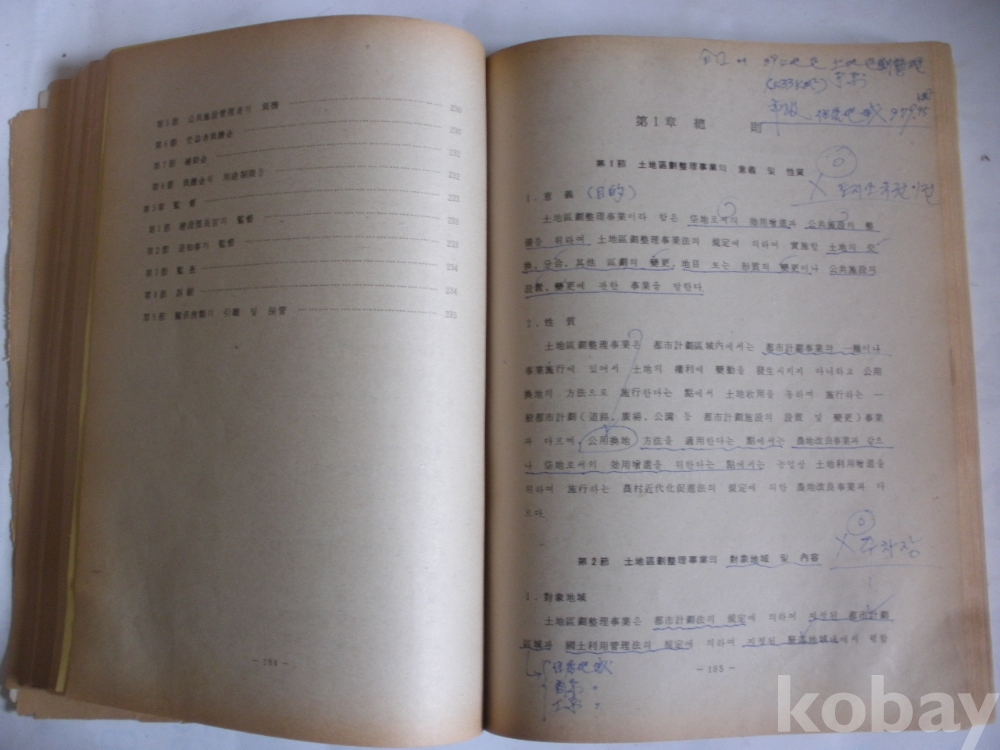 第5節 公共施設管理者의 負擔 230
第6節 受益者負擔金 230
第7節 補助金 232
第8節 負擔金의 232
第3章 監督 233
第1節 建設部長官의 監督 233
第2節 道知事의 監督 233
第3節 234
第4節 訴願 234
第5節 關係書類의 引繼 및 保管 235
- 184 -
第1章 總 則
第1節 土地區劃整理事業의 意義 및 性質
1. 意義 (目的)
土地區劃整理事業이라 함은 垈地로서의 効用增進과 公共施設의 整
備를 위하여 土地區劃整理事業法의 規定에 의하여 實施할 土地의 交
換, 分合, 其他 區劃의 變更, 地目 또는 形質의 變更이나 公共施設의
設置, 變更에 관한 事業을 말한다.
2. 性質
土地區劃整理事業은 都市計劃區域內에서는 都市計劃事業의 一種이나
事業施行에 있어서 土地의 權利에 變動을 發生시키지 아니하고 公用
換地의 方法으로 施行한다는 點에서 土地收用을 통하여 施行하는 一
般都市計劃(道路, 廣場, 公園 등 都市計劃施設의 設置 및 變更)事業
과 다르며, 公用換地 方法을 適用한다는 點에서는 農地改良事業과 같으
나 垈地로서의 効用增進을 위한다는 點에서는 농업상 土地利用增進을
위하여 施行하는 農村近代化促進法의 規定에 의한 農地改良事業과 다
르다.
주차장
第2節 土地區劃整理事業의 對象地域 및 內容
1. 對象地域
土地區劃整理事業은 都市計劃法의 規定에 의하여 지정된 都市計劃
區域과 國土利用管理法의 規定에 의하여 지정된 聚落地域에서 행함
- 185 -
kobay